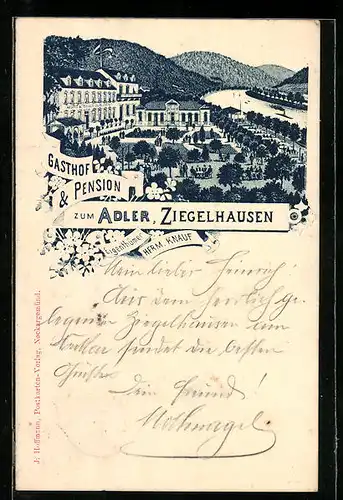 GASTHOF
& PENSION
ZUM ADLER, ZIEGELHAUSEN
Eigenthümer
HERM. KNAUF
Mein lieber Heinrich!
Aus dem herrlich ge-
legenen Ziegelhausen am
Neckar sendet die besten
Grüße
Dein Freund!
Nothnagel
J. Hoffmann, Postkarten-Verlag, Neckargemünd.